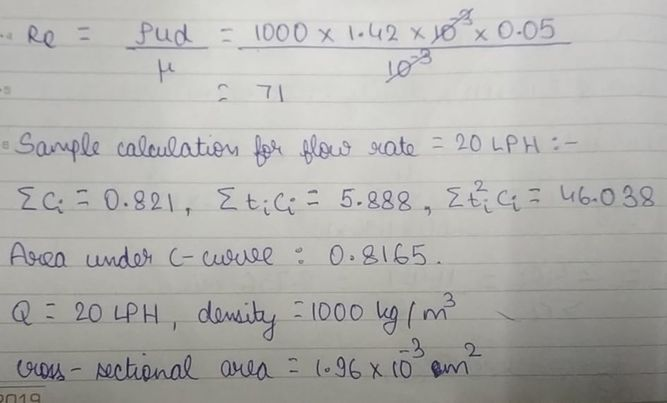 Re = ρud / μ = 1000 × 1.42 × 10⁻³ × 0.05 / 10⁻³
= 71
Sample calculation for flow rate = 20 LPH :-
ΣCi = 0.821, ΣtiCi = 5.888, Σti²Ci = 46.038
Area under C-curve : 0.8165.
Q = 20 LPH, density = 1000 kg/m³
cross-sectional area = 1.96 × 10⁻³ m²
2019